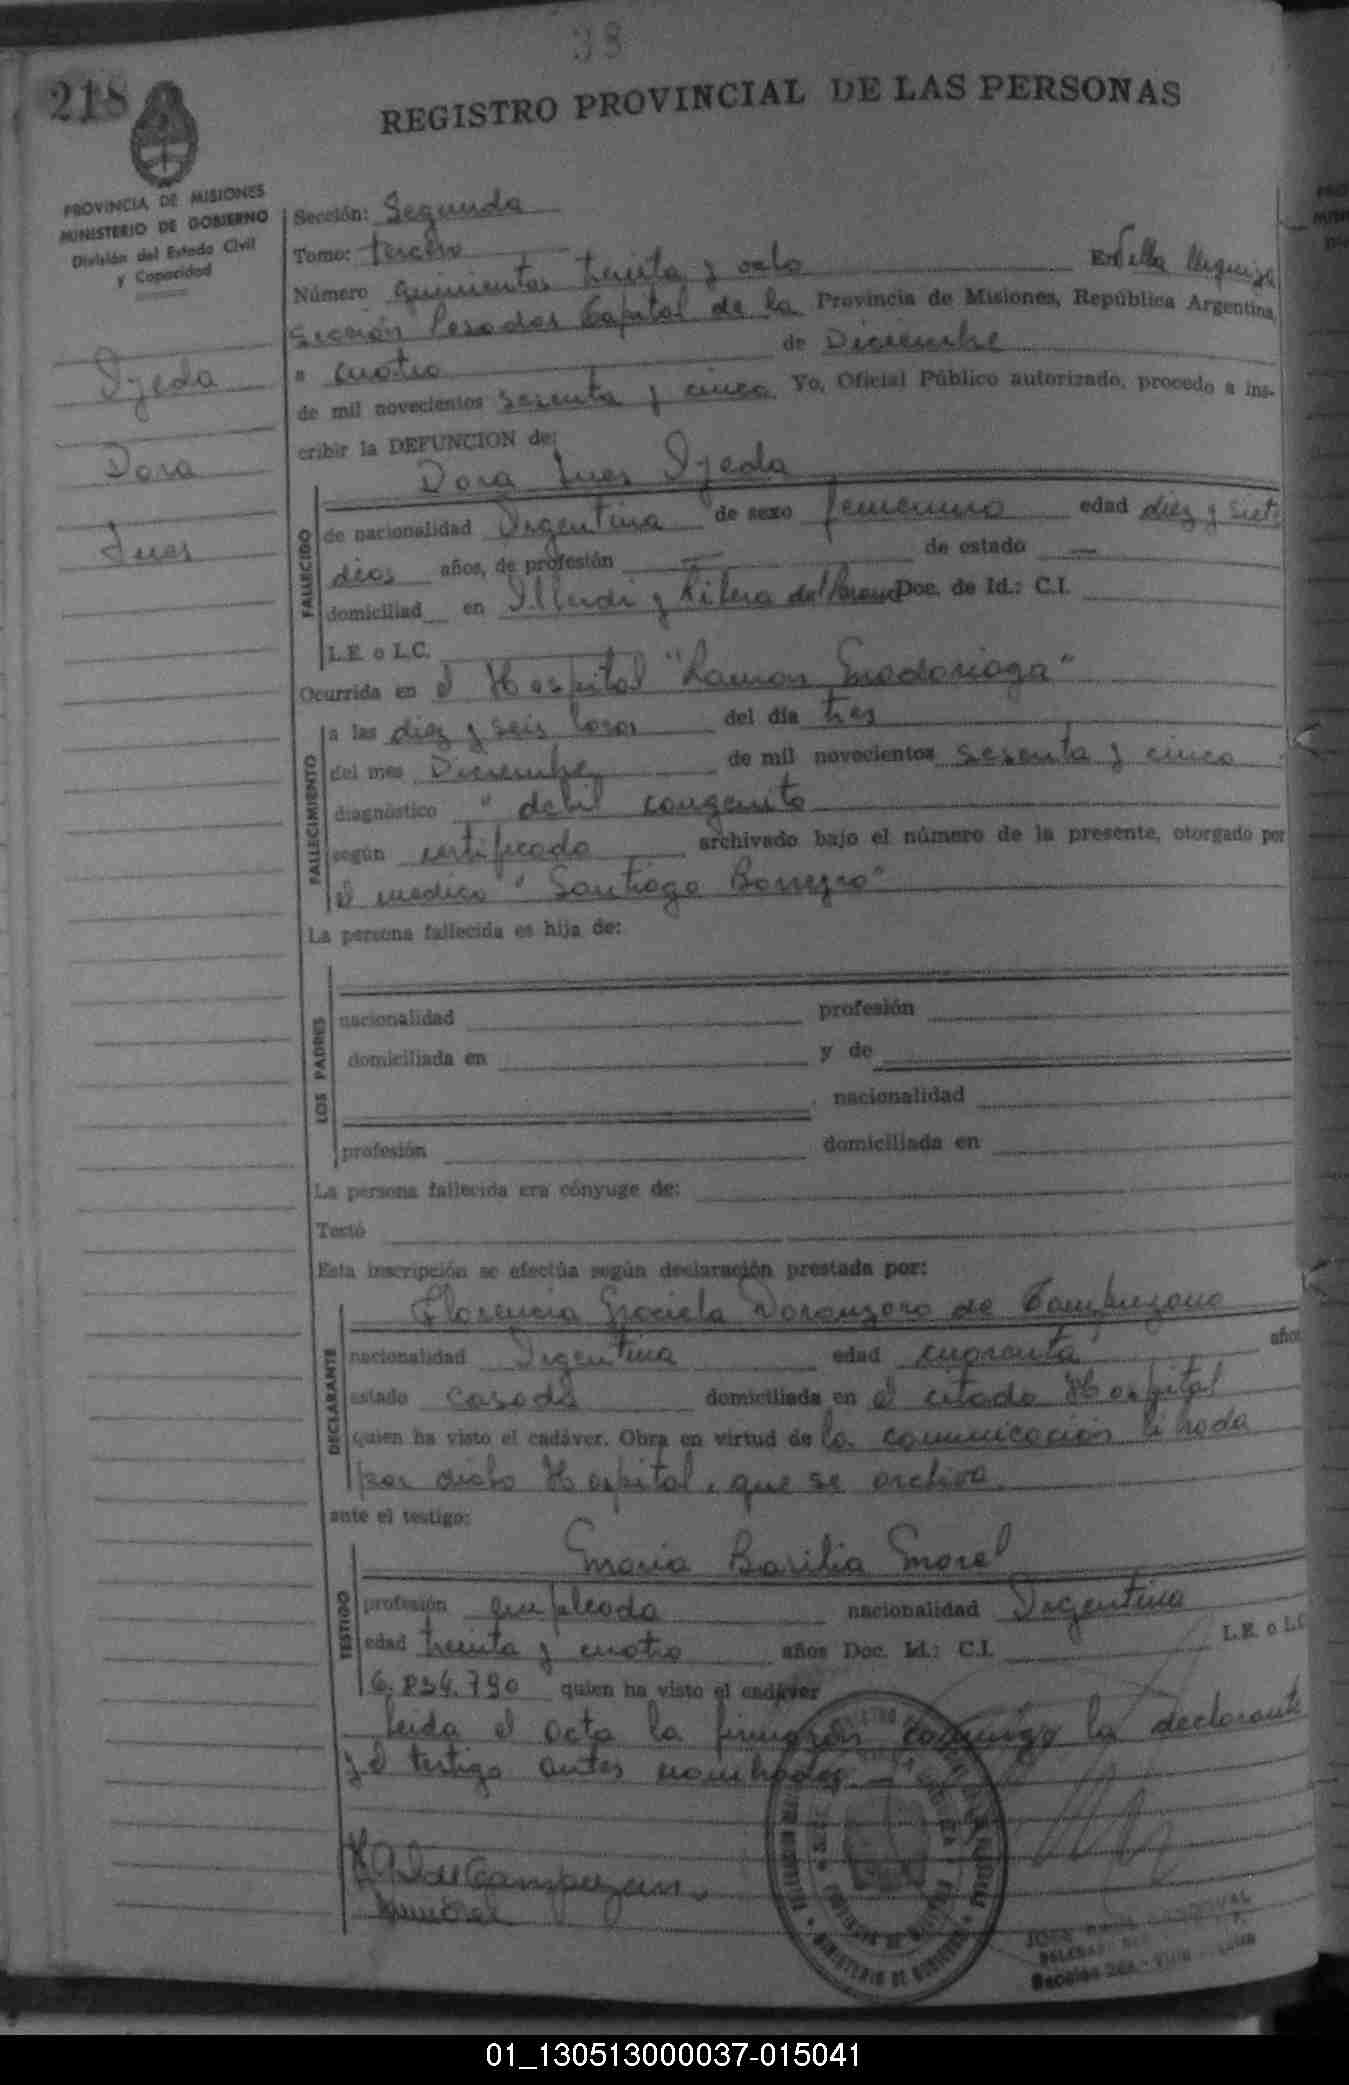 38
218
REGISTRO PROVINCIAL DE LAS PERSONAS
PROVINCIA DE MISIONES
MINISTERIO DE GOBIERNO
División del Estado Civil
y Capacidad
Ojeda
Dora
Ines
Sección: Segunda
Tomo: tercero
Número quinientos treinta y ocho En Villa Urquiza
Sección Posadas Capital de la Provincia de Misiones, República Argentina,
a cuatro de Diciembre
de mil novecientos sesenta y cinco Yo, Oficial Público autorizado, procedo a ins-
cribir la DEFUNCION de:
Dora Ines Ojeda
FALLECIDO
de nacionalidad Argentina de sexo femenino edad diez y siete
dias años, de profesión — de estado —
domiciliad en y Ribera del Doc. de Id.: C.I.
L.E. o L.C.
Ocurrida en el Hospital "Ramon Madariaga"
FALLECIMIENTO
a las diez y seis horas del día tres
del mes Diciembre de mil novecientos sesenta y cinco
diagnóstico " debil congenito
según certificado archivado bajo el número de la presente, otorgado por
el medico " Santiago "
La persona fallecida es hija de:
LOS PADRES
nacionalidad profesión
domiciliada en y de
nacionalidad
profesión domiciliada en
La persona fallecida era cónyuge de:
Testó
Esta inscripción se efectúa según declaración prestada por:
DECLARANTE
Florencia Graciela de Campuzano
nacionalidad Argentina edad cuarenta años
estado casada domiciliada en el citado Hospital
quien ha visto el cadáver. Obra en virtud de la comunicacion librada
por dicho Hospital, que se archiva.
ante el testigo:
TESTIGO
Maria Basilia Morel
profesión empleada nacionalidad Argentina
edad treinta y cuatro años Doc. Id.: C.I. L.E. o L.C.
6.834.790 quien ha visto el cadáver
leida el acta la firmaron conmigo la declarante
y el testigo antes nombrados.—
de Campuzano
MINISTERIO DE GOBIERNO
PROVINCIA DE MISIONES
JOSE SANDOVAL
DELEGADO
Sección 2da. - Villa
01_130513000037-015041